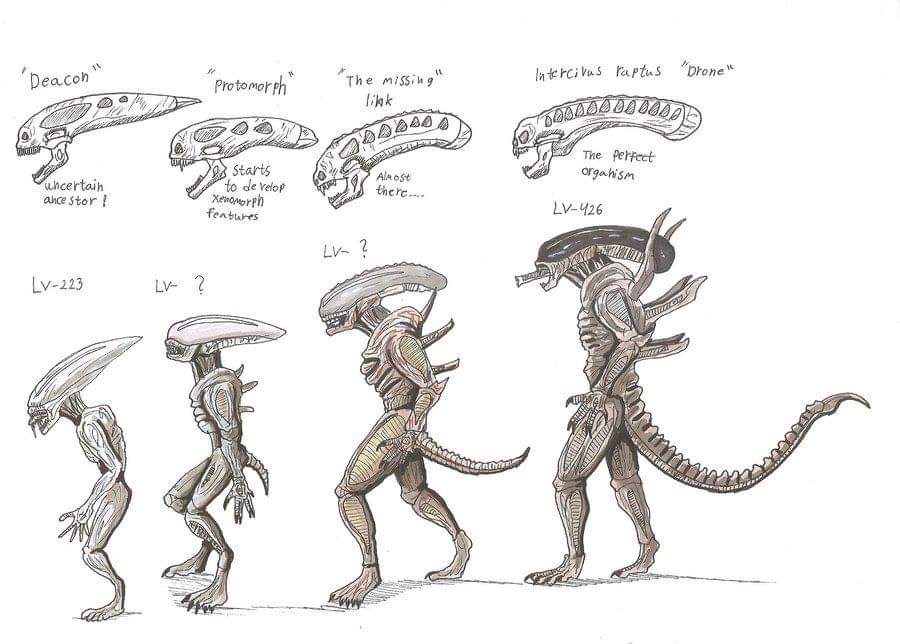 "Deacon"
uncertain
ancestor !
"Protomorph"
starts
to develop
xenomorph
features
"The missing"
link
Almost
there....
Intercivus raptus "Drone"
The perfect
organism
LV-223
LV- ?
LV- ?
LV-426